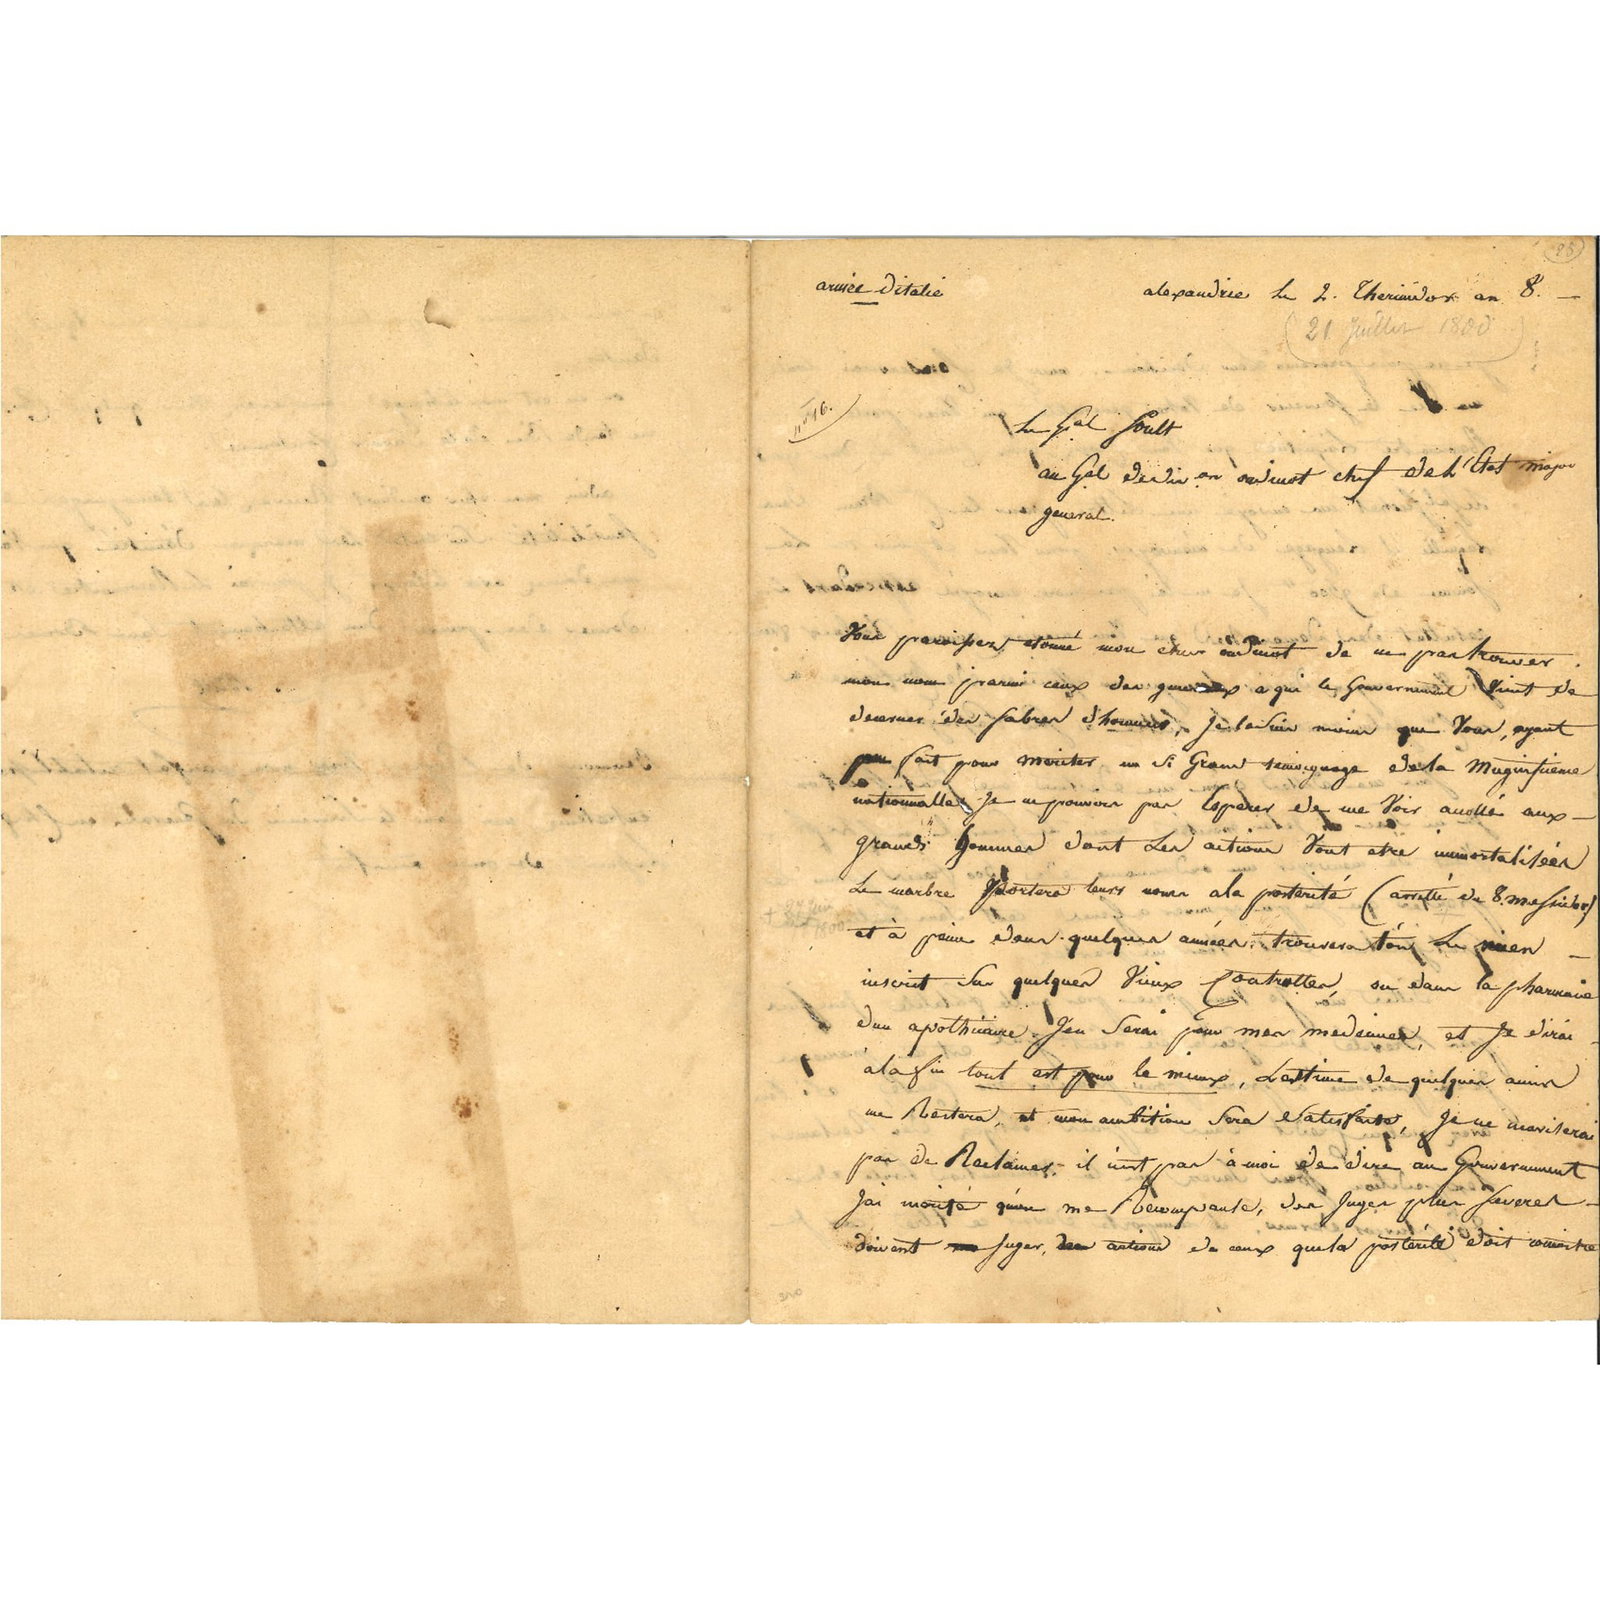 25
armée d'italie
alexandrie le 2. Thermidor an 8. —
(21 Juillet 1800)
n° 16.
Le Gal Soult
au Gal de divon oudinot chef de L'Etat major
general.
Vous paroissez etonné mon cher oudinot de ne pas trouver
mon nom parmi ceux des guerriers a qui le Gouvernement Vient de
decerner des sabres d'honneur, Je le suis moins que Vous, ayant
peu fait pour meriter un si Grand temoignage de la Magnificence
nationnalle, Je ne pouvois pas Esperer de me Voir accollé aux —
grands hommes dont Les actions Vont etre immortalisées
Le marbre portera leurs noms a la posterité (arretté du 8. messidor)
et à peine dans quelques années trouvera t'on Le mien —
inscrit sur quelques Vieux Controlles, ou dans la pharmacie
d'un apothicaire J'en serai pour mes medecines, et Je dirai
à la fin tout est pour le mieux, L'estime de quelques amis
me Restera, et mon ambition Sera Satisfaite, Je ne m'aviserai
pas de Reclamer, il n'est pas à moi de dire au Gouvernement
J'ai merité qu'on me Recompense, des Juges plus Severes —
doivent Juger, les actions de ceux que la posterité doit connoitre